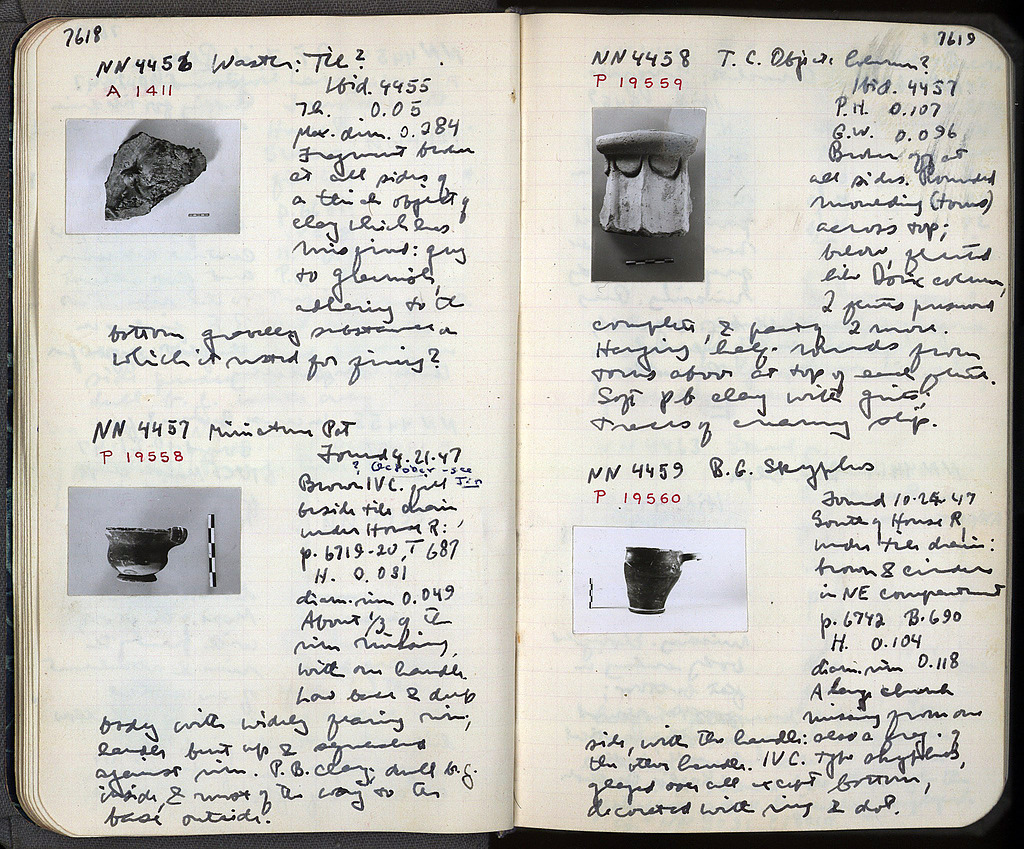 7618
NN 4456 Waster: Tile?
A 1411
Ibid. 4455
Th. 0.05
Max. dim. 0.284
Fragment broken
at all sides of
a thick object of
clay which has
misfired: grey
to greenish,
adhering to the
bottom gravelly substance on
which it rested for firing?
NN 4457 Miniature Pot
P 19558
Found 4.21.47
? October - see
Brown IV C. fill
beside tile drain
under House R:
p. 6719-20, T 687
H. 0.031
diam. rim 0.049
About 1/3 of the
rim missing,
with one handle
Low base & deep
body with widely flaring rim;
handle bent up & squeezed
against rim. P.B. clay, dull b.g.
inside, & most of the way to the
base outside.
7619
NN 4458 T.C. Object: Column?
P 19559
Ibid. 4457
P.H. 0.107
G.W. 0.096
Broken off at
all sides. Rounded
moulding (torus)
across top;
below, fluted
like Doric column,
2 flutes preserved
complete, & partly 2 more.
Hanging half-rounds from
torus above at top of each flute.
Soft pb clay with grits;
traces of creamy slip.
NN 4459 B.G. Skyphos
P 19560
Found 10-25-47
South of House R,
under tile drain:
brown & cinders
in NE compartment
p. 6742 B. 690
H. 0.104
diam. rim 0.118
A large chunk
missing from one
side, with the handle: also a frag. of
the other handle. IV C. type skyphos,
glazed over all except bottom,
decorated with ring & dot.